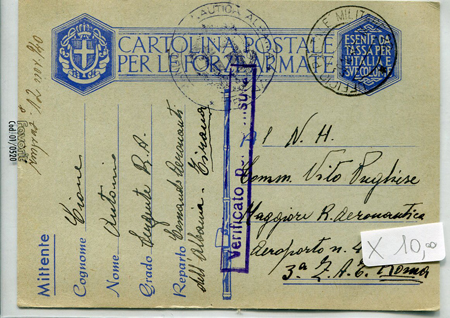 CARTOLINA POSTALE
PER LE FORZE ARMATE
ESENTE DA
TASSA PER
L'ITALIA E
SVE COLONIE
Mittente
Cognome Cione
Nome Antonio
Grado Sergente R.A.
Reparto Comando Aeronautica
dell'Albania - Tirana
Verificato
N. H.
Comm. Vito Pugliese
Maggiore R. Aeronautica
Aeroporto n. 4
3ª Z.A.T. Roma
X 10,00
Cod. 01/0520